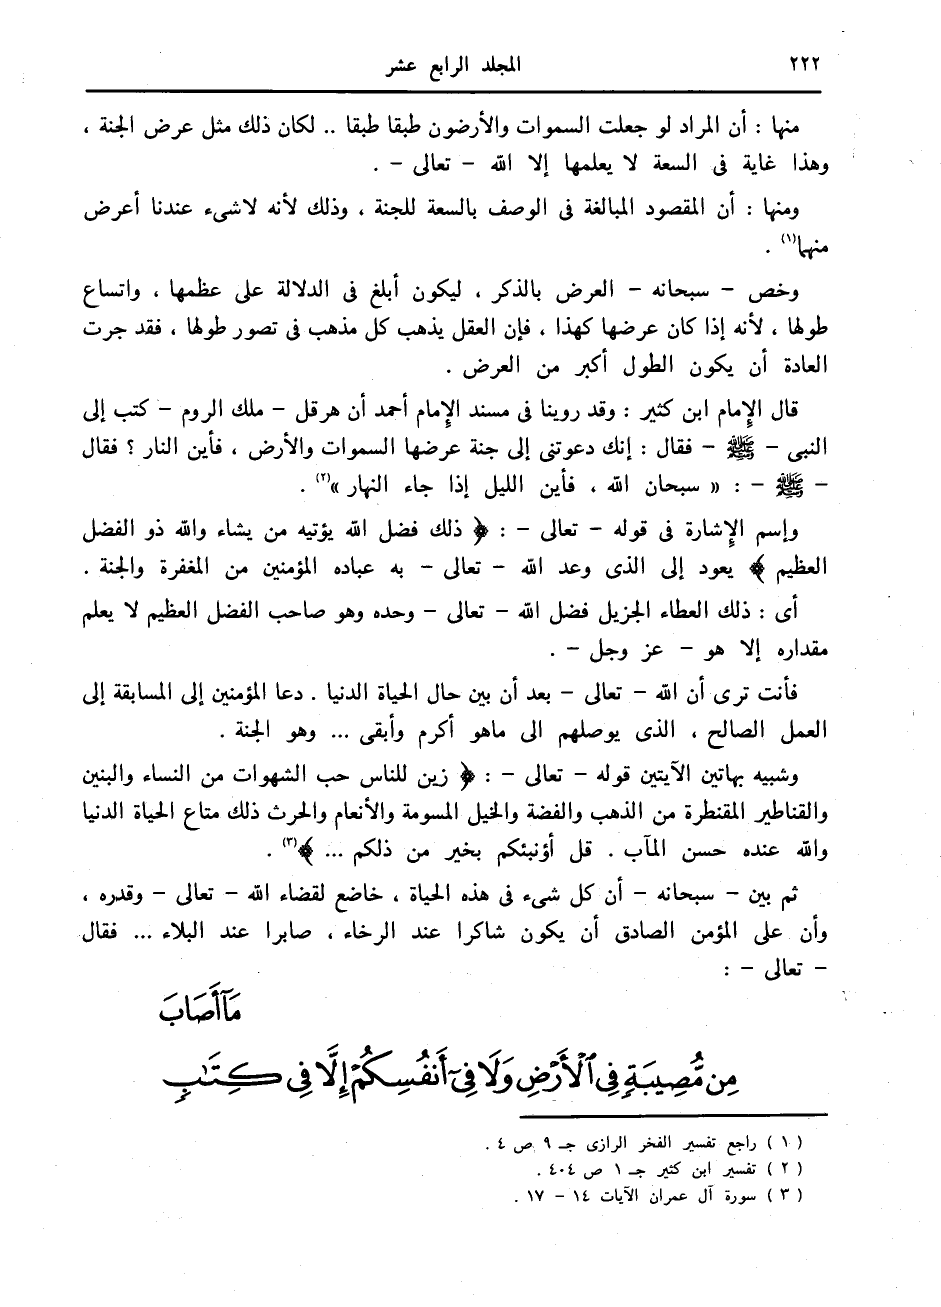 ٢٢٢ المجلد الرابع عشر
منها : أن المراد لو جعلت السموات والأرضون طبقا طبقا .. لكان ذلك مثل عرض الجنة ،
وهذا غاية فى السعة لا يعلمها إلا الله – تعالى – .
ومنها : أن المقصود المبالغة فى الوصف بالسعة للجنة ، وذلك لأنه لاشىء عندنا أعرض
منهما(١) .
وخص – سبحانه – العرض بالذكر ، ليكون أبلغ فى الدلالة على عظمها ، واتساع
طولها ، لأنه إذا كان عرضها كهذا ، فإن العقل يذهب كل مذهب فى تصور طولها ، فقد جرت
العادة أن يكون الطول أكبر من العرض .
قال الإمام ابن كثير : وقد روينا فى مسند الإمام أحمد أن هرقل – ملك الروم – كتب إلى
النبى – ﷺ – فقال : إنك دعوتنى إلى جنة عرضها السموات والأرض ، فأين النار ؟ فقال
– ﷺ – : « سبحان الله ، فأين الليل إذا جاء النهار »(٢) .
وإسم الإشارة فى قوله – تعالى – : ﴿ ذلك فضل الله يؤتيه من يشاء والله ذو الفضل
العظيم ﴾ يعود إلى الذى وعد الله – تعالى – به عباده المؤمنين من المغفرة والجنة .
أى : ذلك العطاء الجزيل فضل الله – تعالى – وحده وهو صاحب الفضل العظيم لا يعلم
مقداره إلا هو – عز وجل – .
فأنت ترى أن الله – تعالى – بعد أن بين حال الحياة الدنيا . دعا المؤمنين إلى المسابقة إلى
العمل الصالح ، الذى يوصلهم الى ماهو أكرم وأبقى ... وهو الجنة .
وشبيه بهاتين الآيتين قوله – تعالى – : ﴿ زين للناس حب الشهوات من النساء والبنين
والقناطير المقنطرة من الذهب والفضة والخيل المسومة والأنعام والحرث ذلك متاع الحياة الدنيا
والله عنده حسن المآب . قل أؤنبئكم بخير من ذلكم ... ﴾(٣) .
ثم بين – سبحانه – أن كل شىء فى هذه الحياة ، خاضع لقضاء الله – تعالى – وقدره ،
وأن على المؤمن الصادق أن يكون شاكرا عند الرخاء ، صابرا عند البلاء ... فقال
– تعالى – :
مَآ أَصَابَ
مِن مُّصِيبَةٍ فِى ٱلْأَرْضِ وَلَا فِىٓ أَنفُسِكُمْ إِلَّا فِى كِتَٰبٍ
( ١ ) راجع تفسير الفخر الرازى جـ ٩ ص ٤ .
( ٢ ) تفسير ابن كثير جـ ١ ص ٤٠٤ .
( ٣ ) سورة آل عمران الآيات ١٤ – ١٧ .